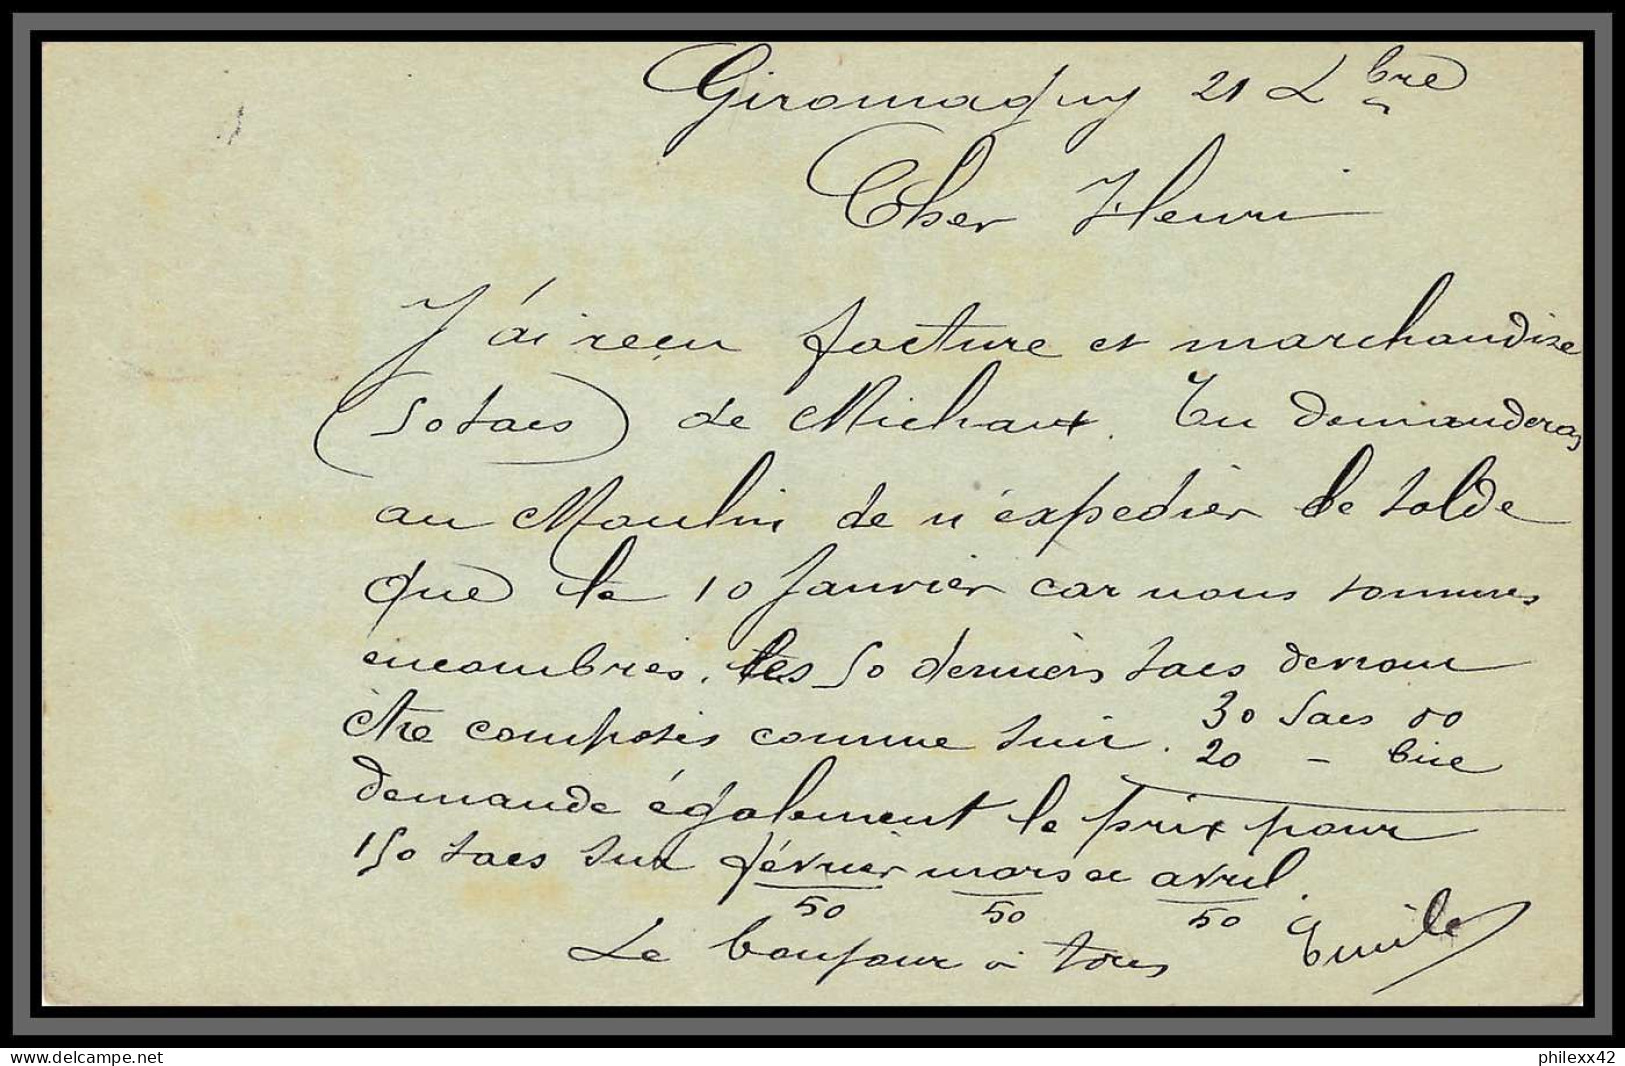 Giromagny 21 Xbre
Cher Henri
J'ai reçu facture et marchandise
(50 sacs) de Michaux. Tu demanderas
au Moulin de n'expedier le solde
que le 10 Janvier car nous sommes
encombrés. les 50 derniers sacs devront
être composés comme suit. 30 Sacs 00
20 - bise
demande également le prix pour
150 sacs sur février mars et avril.
50 50 50
Le bonjour à tous Emile
philexx42